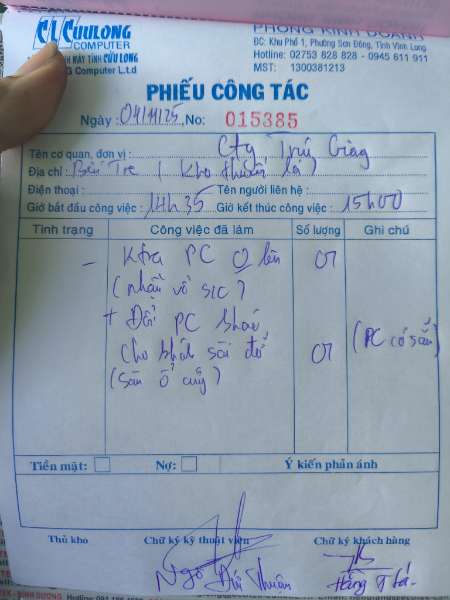 CL CUULONG
COMPUTER
PHÒNG KINH DOANH
ĐC: Khu Phố 1, Phường Sơn Đông, Tỉnh Vĩnh Long
Hotline: 02753 828 828 - 0945 611 911
MST: 1300381213
MÁY TÍNH CỬU LONG
G Computer L.t.d
PHIẾU CÔNG TÁC
Ngày: 04/11/25, No: 015385
Tên cơ quan, đơn vị: Cty Trú Giang
Địa chỉ: Bến Tre (Kho thuốc lá)
Điện thoại: Tên người liên hệ:
Giờ bắt đầu công việc: 14h35 Giờ kết thúc công việc: 15h00
Tình trạng Công việc đã làm Số lượng Ghi chú
- Ktra PC O lên 01
(nhận về S/C)
+ Đổi PC khác
cho khách sài đỡ 01 (PC có sẵn)
(Sàn ổ cứng)
Tiền mặt: Nợ: Ý kiến phản ánh
Thủ kho Chữ ký kỹ thuật viên Chữ ký khách hàng
Ngô